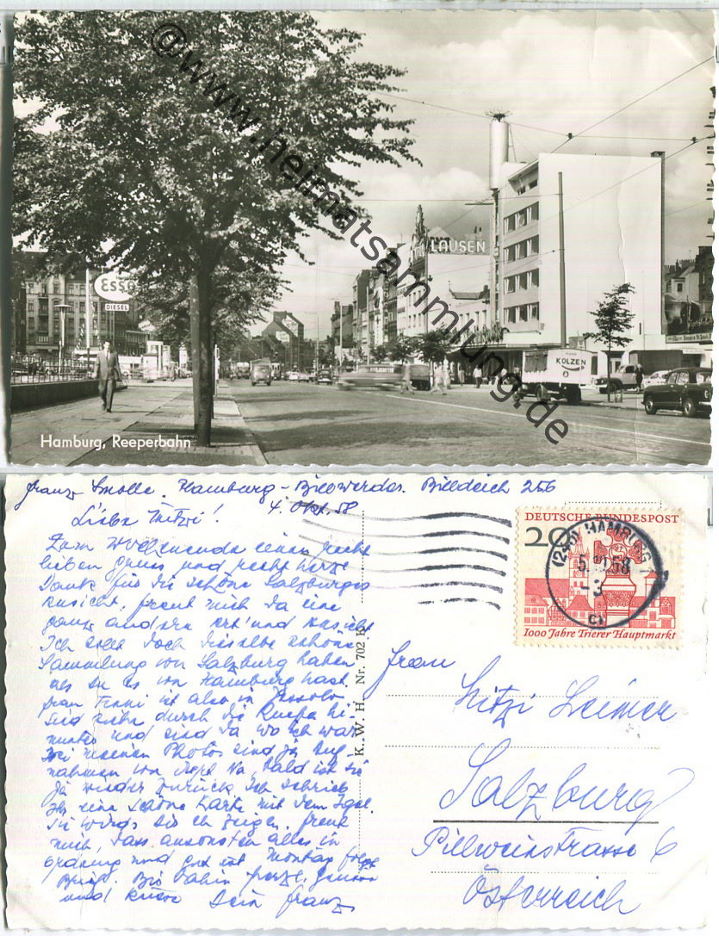 ©www.heimatsammlung.de
Esso
DIESEL
LAUSEN
KOLZEN
Hamburg, Reeperbahn
Franz Smolle. Hamburg-Billwerder. Billdeich 256
Liebe Mitzi! 4. Okt. 58
Zum Wochenende einen recht
lieben Gruss und recht herzl.
Dank für die schöne Salzburger
Ansicht, freut mich da eine
ganz andere Art und Ansicht
Ich sollte doch dieselbe schöne
Sammlung von Salzburg haben
als du es von Hamburg hast.
Frau Fanni ist also in
Sind durch die
und sind da wo ich war
Bei meinen Photos sind ja Auf-
nahmen von dort. Na, bald ist sie
ja wieder zurück. Ich schrieb
Ihr eine schöne Karte mit dem Igel.
Sie wird sie dir zeigen. Freut
mich, dass ansonsten alles in
Ordnung und gut ist. Montag folgt
Brief. Bis dahin herzl. Grüsse
und Küsse Dein Franz
K. W. H. Nr. 702
DEUTSCHE BUNDESPOST
20
1000 Jahre Trierer Hauptmarkt
(24a) HAMBURG
5.10.58
3
Frau
Mitzi Leimer
Salzburg
Pillweinstrasse 6
Österreich